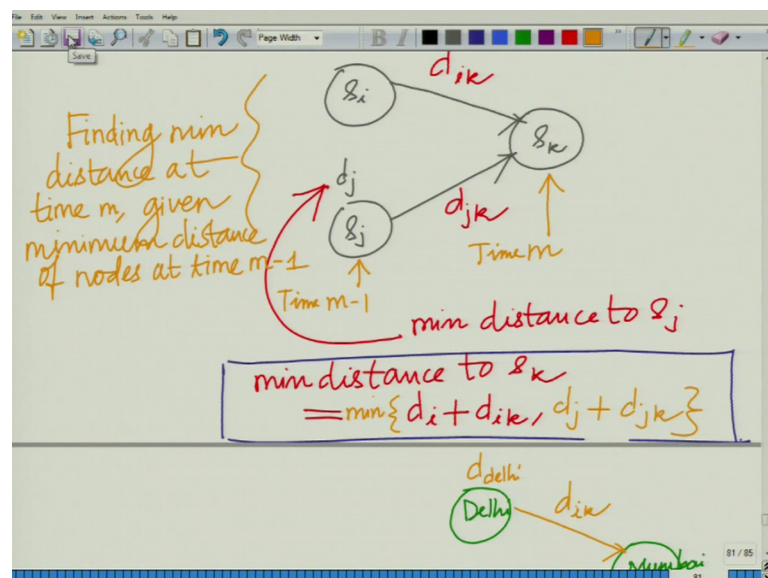 File Edit View Insert Actions Tools Help
Page Width
B I
Save
Finding min
distance at
time m, given
minimum distance
of nodes at time m-1
s_i
d_ik
s_k
d_j
s_j
d_jk
Time m
Time m-1
min distance to s_j
min distance to s_k
= min{d_i + d_ik, d_j + d_jk}
d_delhi
Delhi
d_ik
Mumbai
81 / 85
81